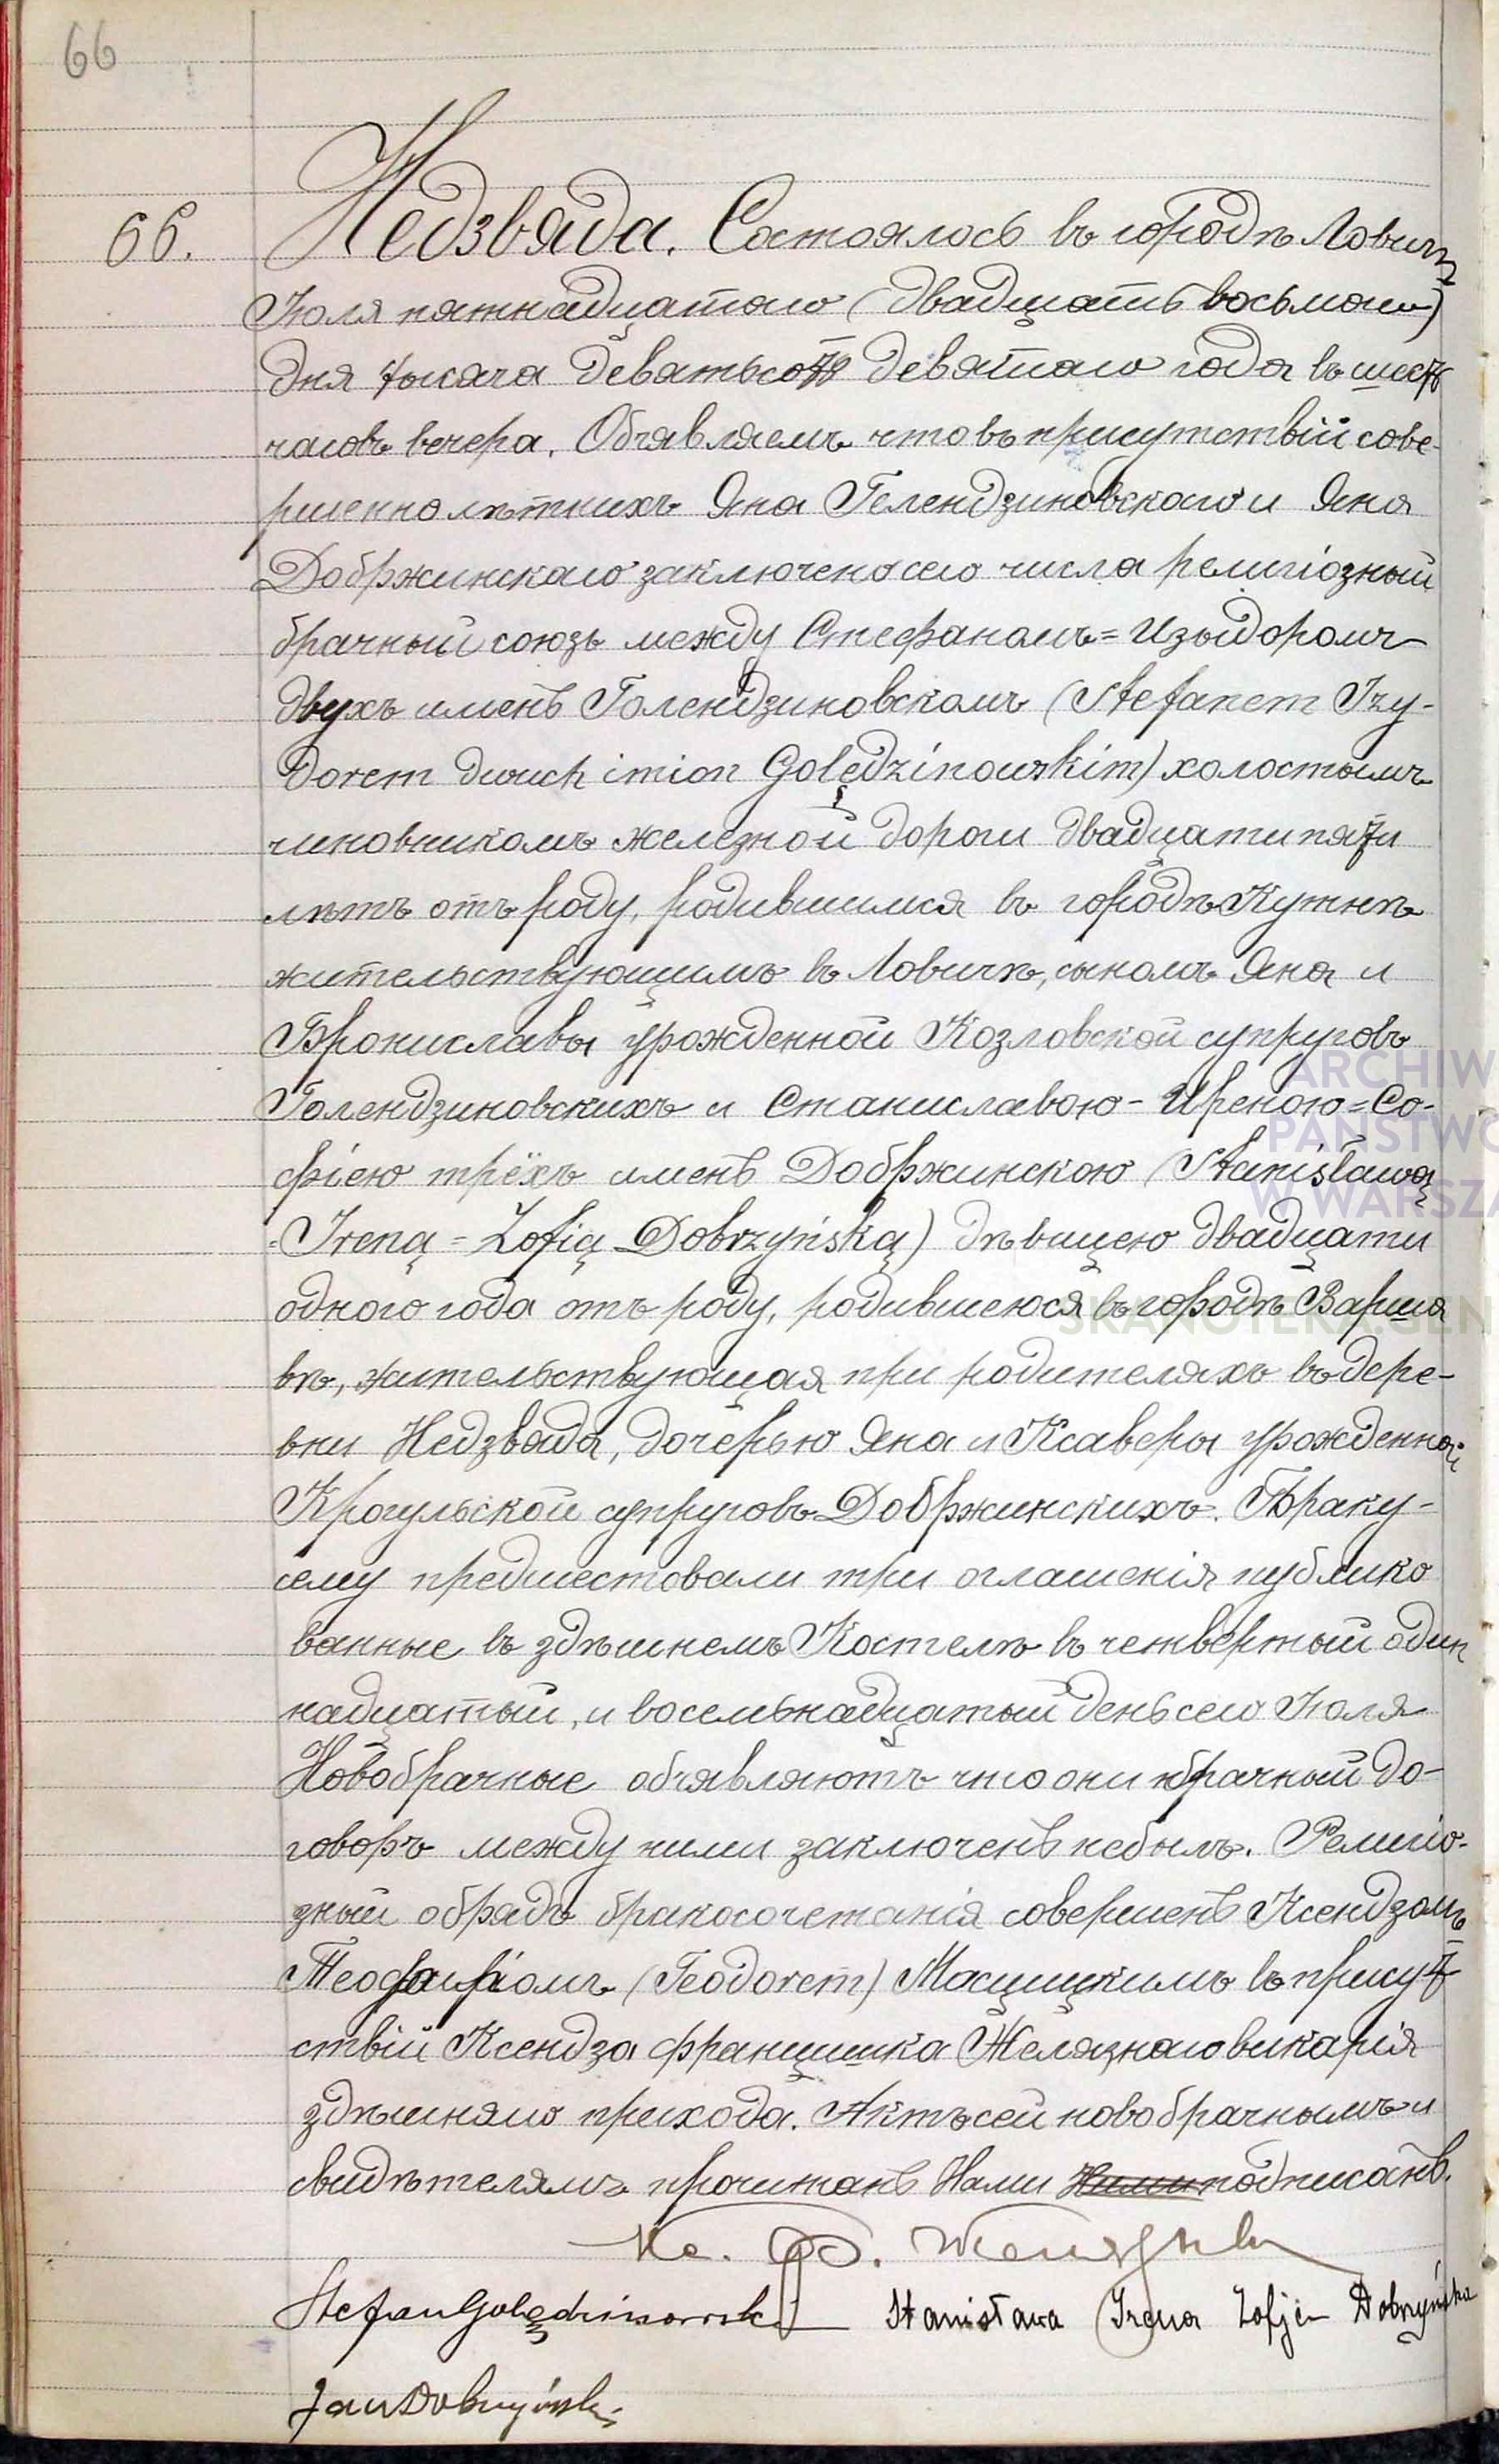 66
66. Недзвяда. Состоялось въ городѣ Ловичѣ
Іюля пятнадцатаго (двадцать восьмаго)
дня тысяча девятьсотъ девятаго года въ шесть
часовъ вечера. Объявляемъ что въ присутствіи сове-
ршеннолѣтнихъ Яна Гелендзиновскаго и Яна
Добржинскаго заключено сего числа религіозный
брачный союзъ между Стефаномъ=Изыдоромъ
двухъ именъ Голендзиновскомъ (Stefanem Izy-
dorem dwuch imion Golędzinowskim) холостымъ
чиновникомъ железной дороги двадцати пяти
лѣтъ отъ роду, родившимся въ городѣ Кутнѣ
жительствующимъ въ Ловичѣ, сыномъ Яна и
Брониславы урожденной Козловской супруговъ
Голендзиновскихъ и Станиславою-Иреною=Со-
фіею трёхъ именъ Добржинскою (Stanisławą
=Ireną=Zofią Dobrzyńską) дѣвицею двадцати
одного года отъ роду, родившеюся въ городѣ Варша
вѣ, жительствующая при родителяхъ въ дере-
вни Недзвяда, дочерью Яна и Ксаверы урожденной
Крогульской супруговъ Добржинскихъ. Браку-
сему предшествовали три оглашенія публико
ванные въ здѣшнемъ Костелѣ въ четвертый один
надцатый, и восемьнадцатый день сего Іюля
Новобрачные объявляютъ что они брачный до-
говоръ между ними заключенъ небылъ. Религіо-
зный обрядъ бракосочетанія совершенъ Ксендзомъ
(Teodorem) Мосцицкимъ въ присут
ствіи Ксендза Францишка Желязнаго викарія
здѣшняго прихода. Актъ сей новобрачнымъ и
свидѣтелямъ прочитанъ Нами Ними подписанъ.
Кс. Ф. Желязны
Stefan Golędzinowski Stanisława Irena Zofja Dobrzyńska
Jan Dobrzyński
ARCHIW
PAŃSTWO
W WARSZA
SKANOTEKA.GEN